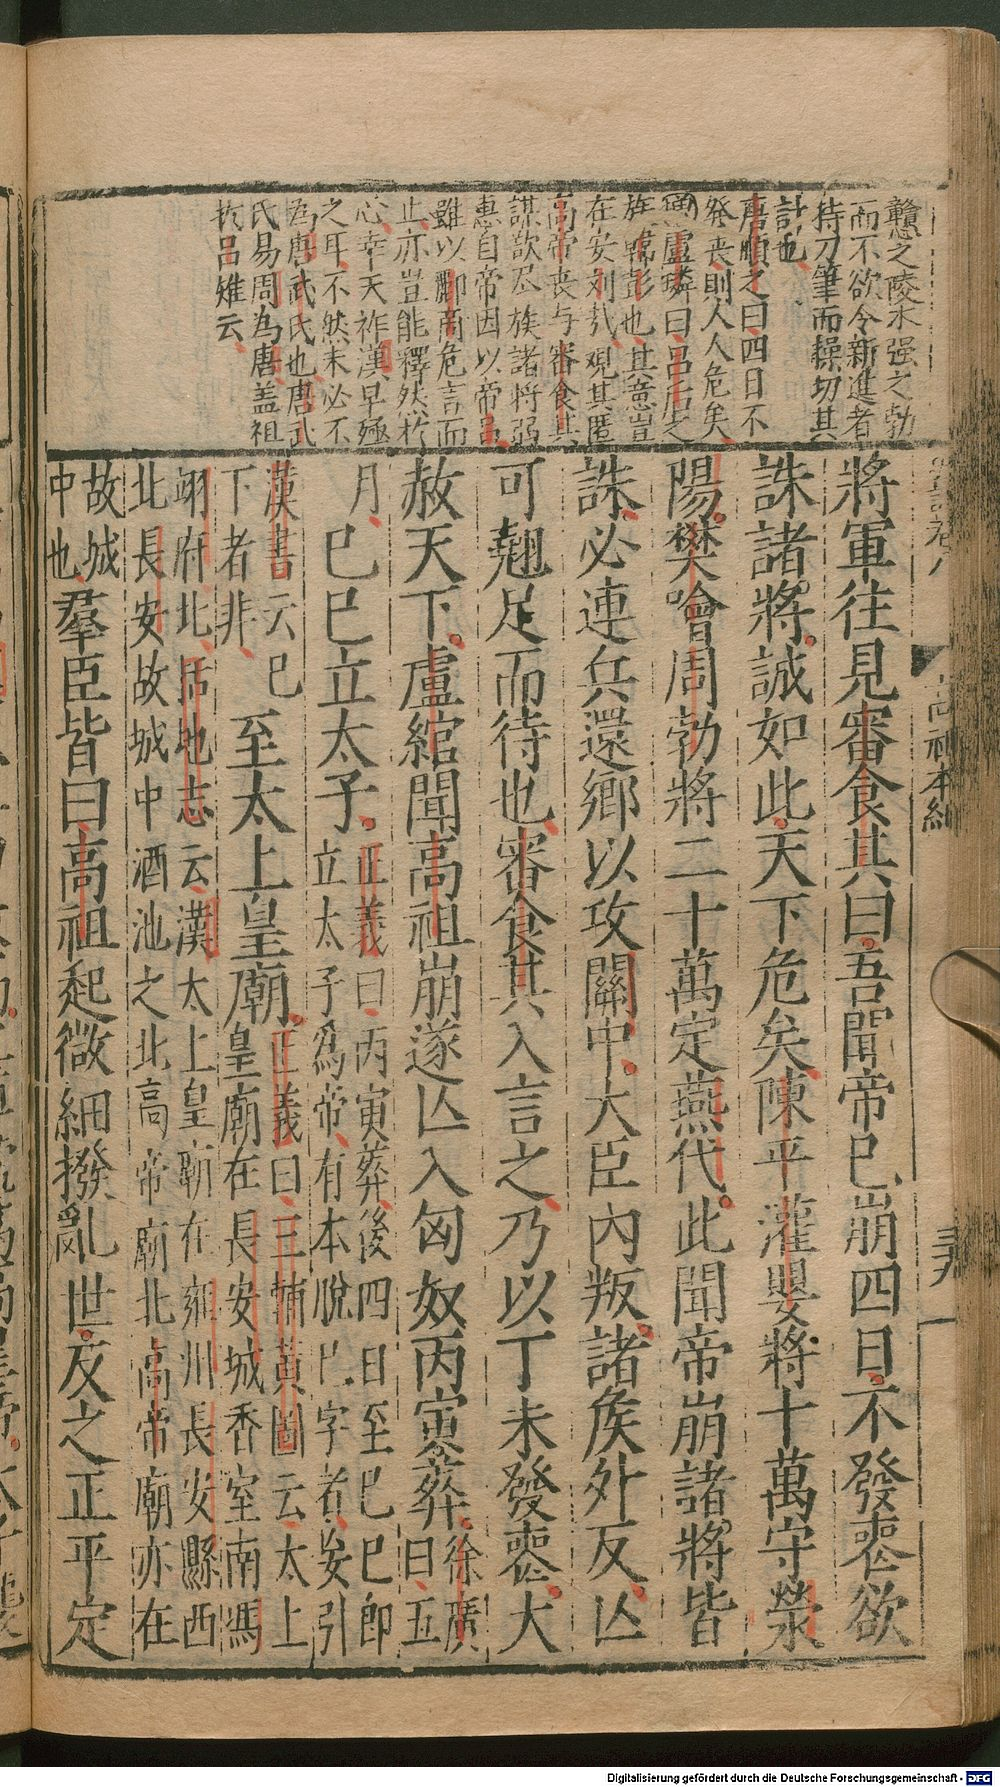 戇之陵木强之勃
而不欲令新進者
持刀筆而操切其
計也
唐順之曰四日不
發丧則人人危矣
盧璘曰呂后之
族韓彭也其意豈
在安刘哉观其匿
高帝丧与審食其
謀欲尽族諸將弼
惠自帝因以帝呂
雖以酈商危言而
止亦豈能釋然於
心幸天祚漢早殛
之耳不然未必不
為唐武氏也唐武
氏易周為唐盖祖
於呂雉云
將軍往見審食其曰吾聞帝已崩四日不發喪欲
誅諸將誠如此天下危矣陳平灌嬰將十萬守滎
陽樊噲周勃將二十萬定燕代此聞帝崩諸將皆
誅必連兵還鄉以攻關中大臣內叛諸侯外反亾
可翹足而待也審食其入言之乃以丁未發喪大
赦天下盧綰聞高祖崩遂亾入匈奴丙寅葬徐廣
曰五
月己巳立太子正義曰丙寅葬後四日至己巳即
立太子爲帝有本脫巳字者妄引
漢書云巳
下者非至太上皇廟正義曰三輔黃圖云太上
皇廟在長安城香室南馮
翊府北括地志云漢太上皇廟在雍州長安縣西
北長安故城中酒池之北高帝廟北高帝廟亦在
故城
中也羣臣皆曰高祖起微細撥亂世反之正平定
高祖本紀
三九
Digitalisierung gefördert durch die Deutsche Forschungsgemeinschaft - DFG